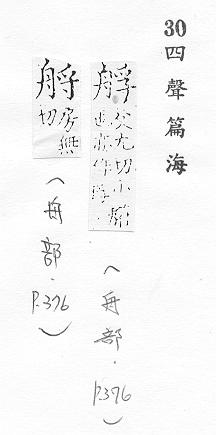 30 四聲篇海
艀 父尤切小
也亦作
(舟部.P.376)
房無
切
(舟部.P.376)